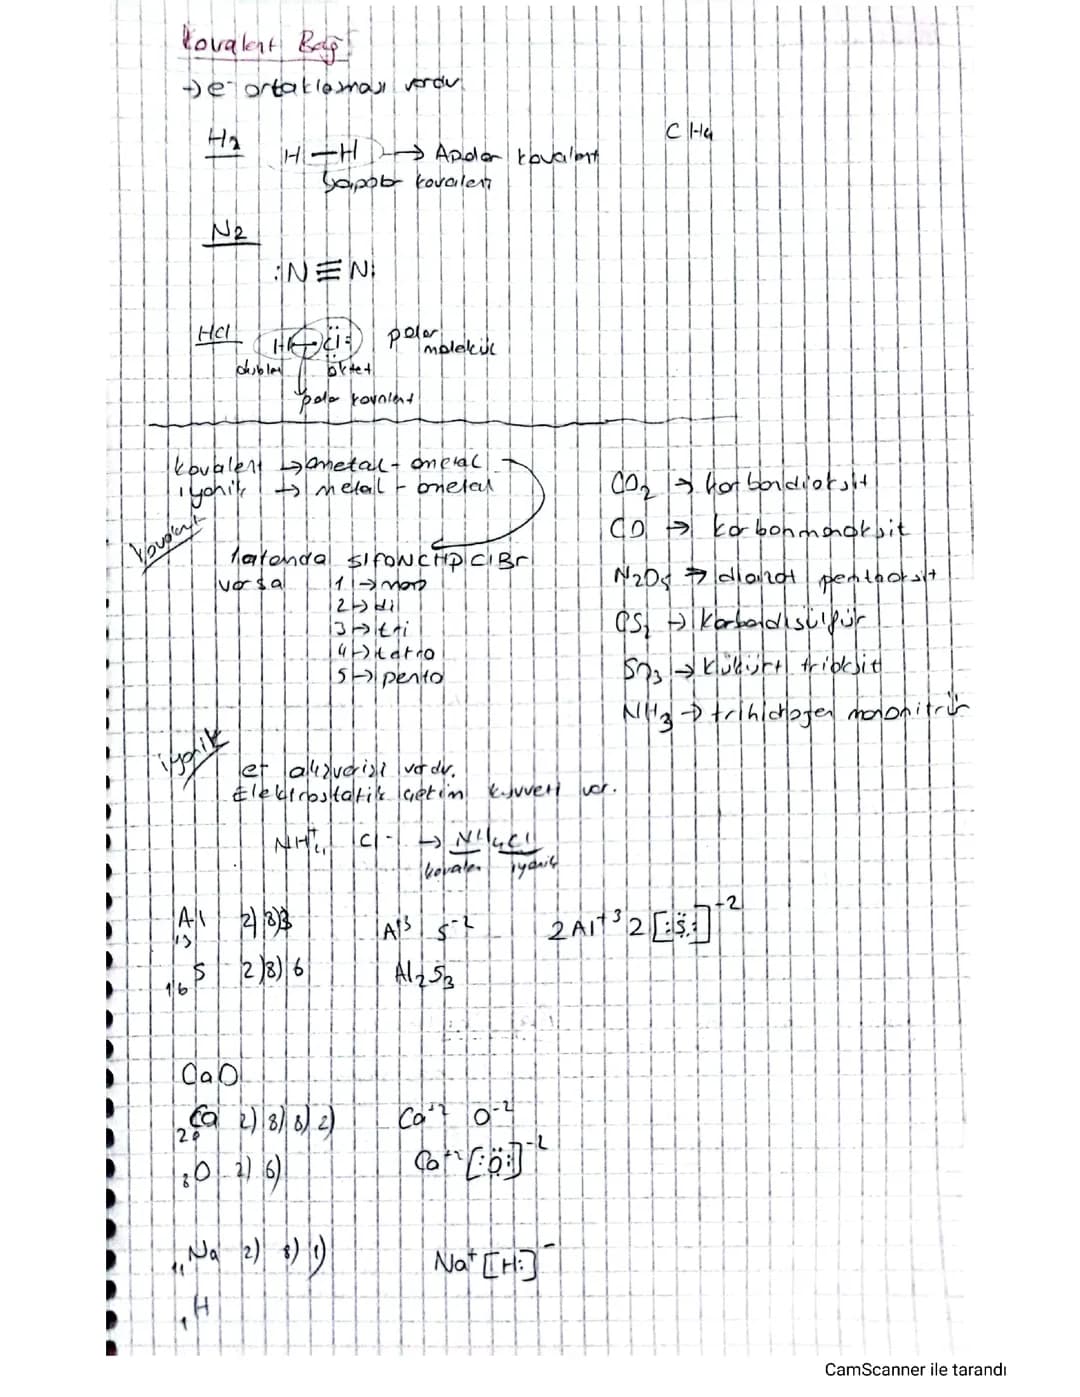 Kovalent Bağ
→ e⁻ ortaklaşması vardır
H₂
H—H → Apolar kovalent
CH₄
N₂
:N≡N:
HCl H—Cl: polar molekül
dublet oktet
polar kovalent
kovalent → ametal - ametal
iyonik → metal - ametal
Kovalent
latanda SIFONCHPClBr
varsa 1 → mono
2 → di
3 → tri
4 → tetra
5 → penta
CO₂ → karbondioksit
CO → karbonmonoksit
N₂O₅ → diazot pentaoksit
CS₂ → Karbondisülfür
SO₃ → kükürt trioksit
NH₃ → trihidrojen mononitrür
iyonik
e⁻ alışverişi vardır.
Elektrostatik çetim kuvveti var.
NH₄⁺ Cl⁻ → NH₄Cl
kovalen iyonik
₁₃Al 2) 8) 3 Al⁺³ S⁻² 2Al⁺³ 2[:S:]⁻²
₁₆S 2) 8) 6 Al₂S₃
CaO
₂₀Ca 2) 8) 8) 2) Ca⁺² O⁻²
₈O 2) 6) Ca⁺² [:Ö:]⁻²
₁₁Na 2) 8) 1) Na⁺ [H:]⁻
₁H
CamScanner ile tarandı